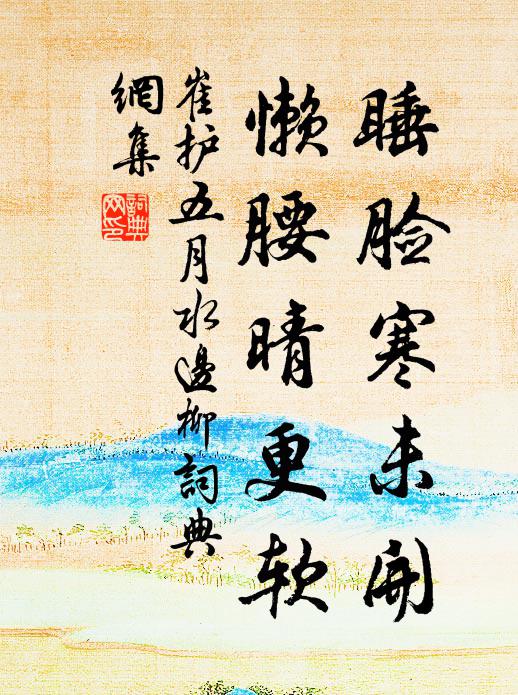 睡脸寒未开
懒腰晴更软
崔护五月水邊柳詞典
網集
詞典
网印